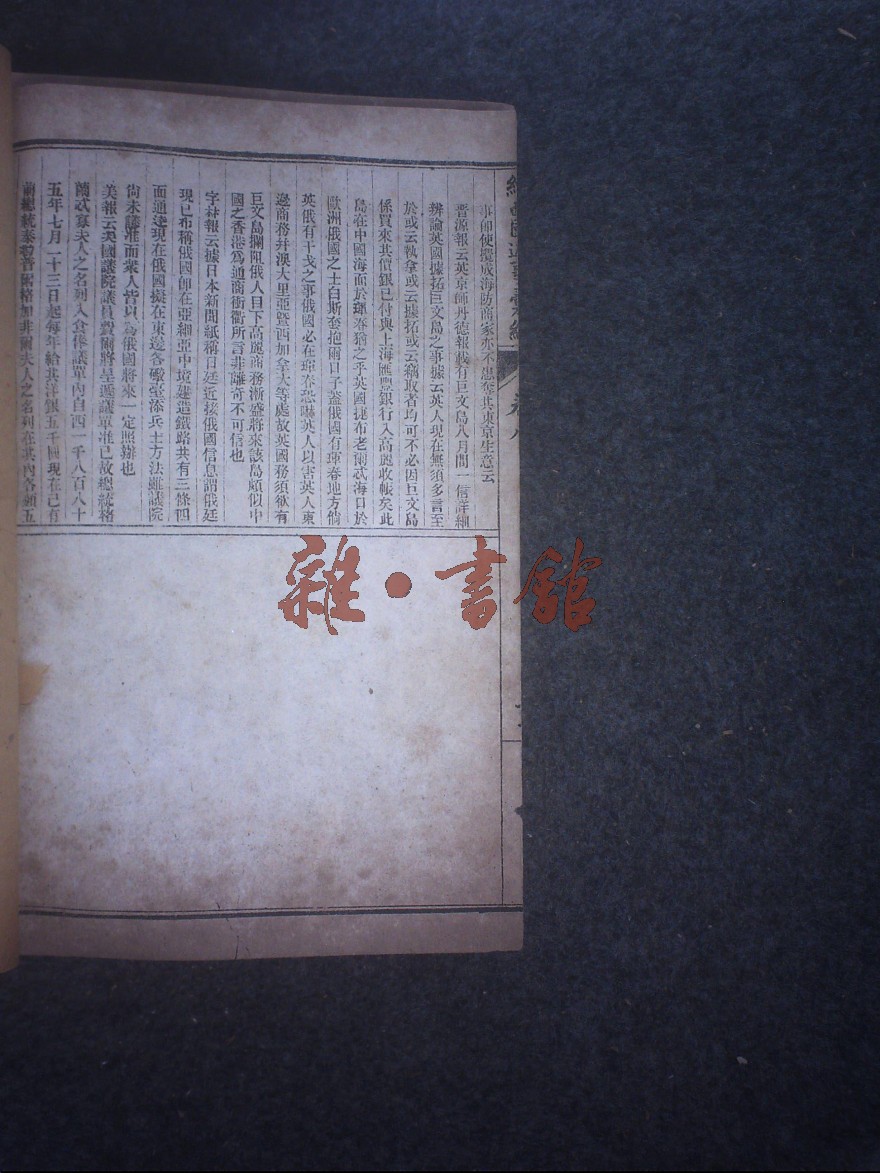 事師使擾成海防商家亦不
其東京生意云
晉源報云英京師丹德報載有巨文島八月間一信詳細
辨論英國據拓巨文島之事據云英人現在無須多言至
於或云執拿或云據拓或云竊取者均可不必因巨文島
係買來其價銀已付與上海匯豐銀行入高麗收帳矣此
島在中國海面於琿春猶之乎英國
布老爾
海口於
歐洲俄國之士白斯奪抱爾日子蓋俄國有琿春地方倘
英俄有干戈之事俄國必在琿春恐嚇英人以害英人東
邊商務幷澳大里亞暨西加拿大等處故英國務須欲有
巨文島攔阻俄人目下高麗商務漸盛將來該島頗似中
國之香港爲通商衝衢所言非離奇不可信也
字林報云據日本新聞紙稱日廷近接俄國信息謂俄廷
現已布稱俄國師在亞細亞中境建造鐵路共有三條四
面通達現在俄國擬在東邊各礮臺添兵士方法雖議院
尙未議准而衆人皆以爲俄國將來一定照辦也
美報云美國議院議員費爾將呈遞議單准已故總統格
蘭忒寡夫人之名列入食俸議單內自西一千八百八十
五年七月二十三日起每年給其洋銀五千圓現在已有
前總統
夫人之名列在其內各領五
卷八
雜·書館